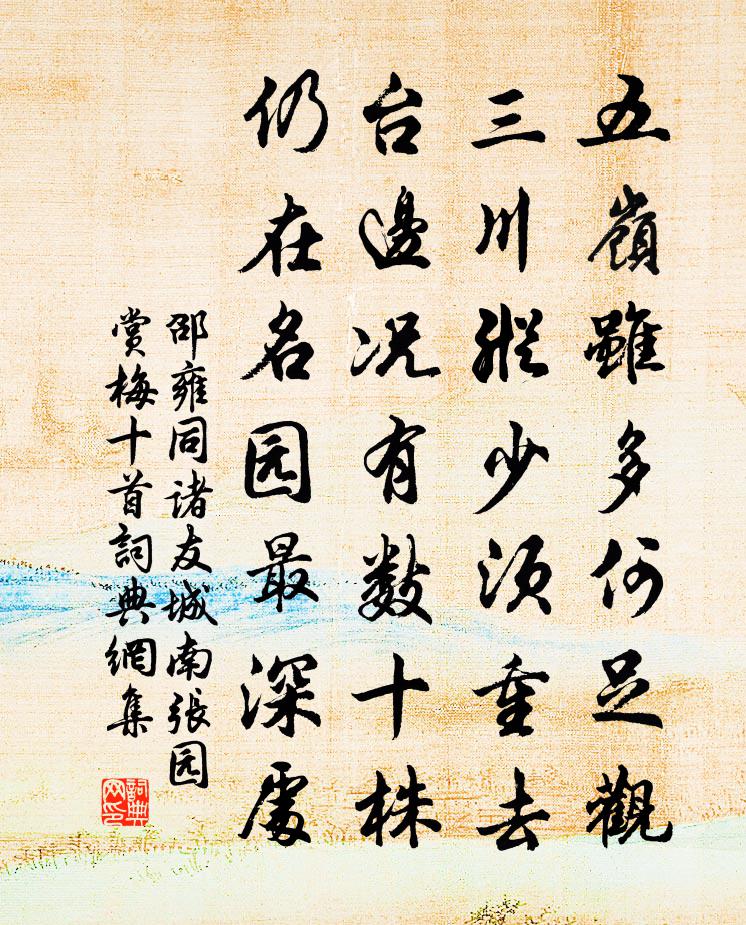 五嶺雖多何足觀
三川縱少須重去
台邊况有數十株
仍在名园最深處
邵雍同诸友城南張园
賞梅十首詞典網集
詞典网印